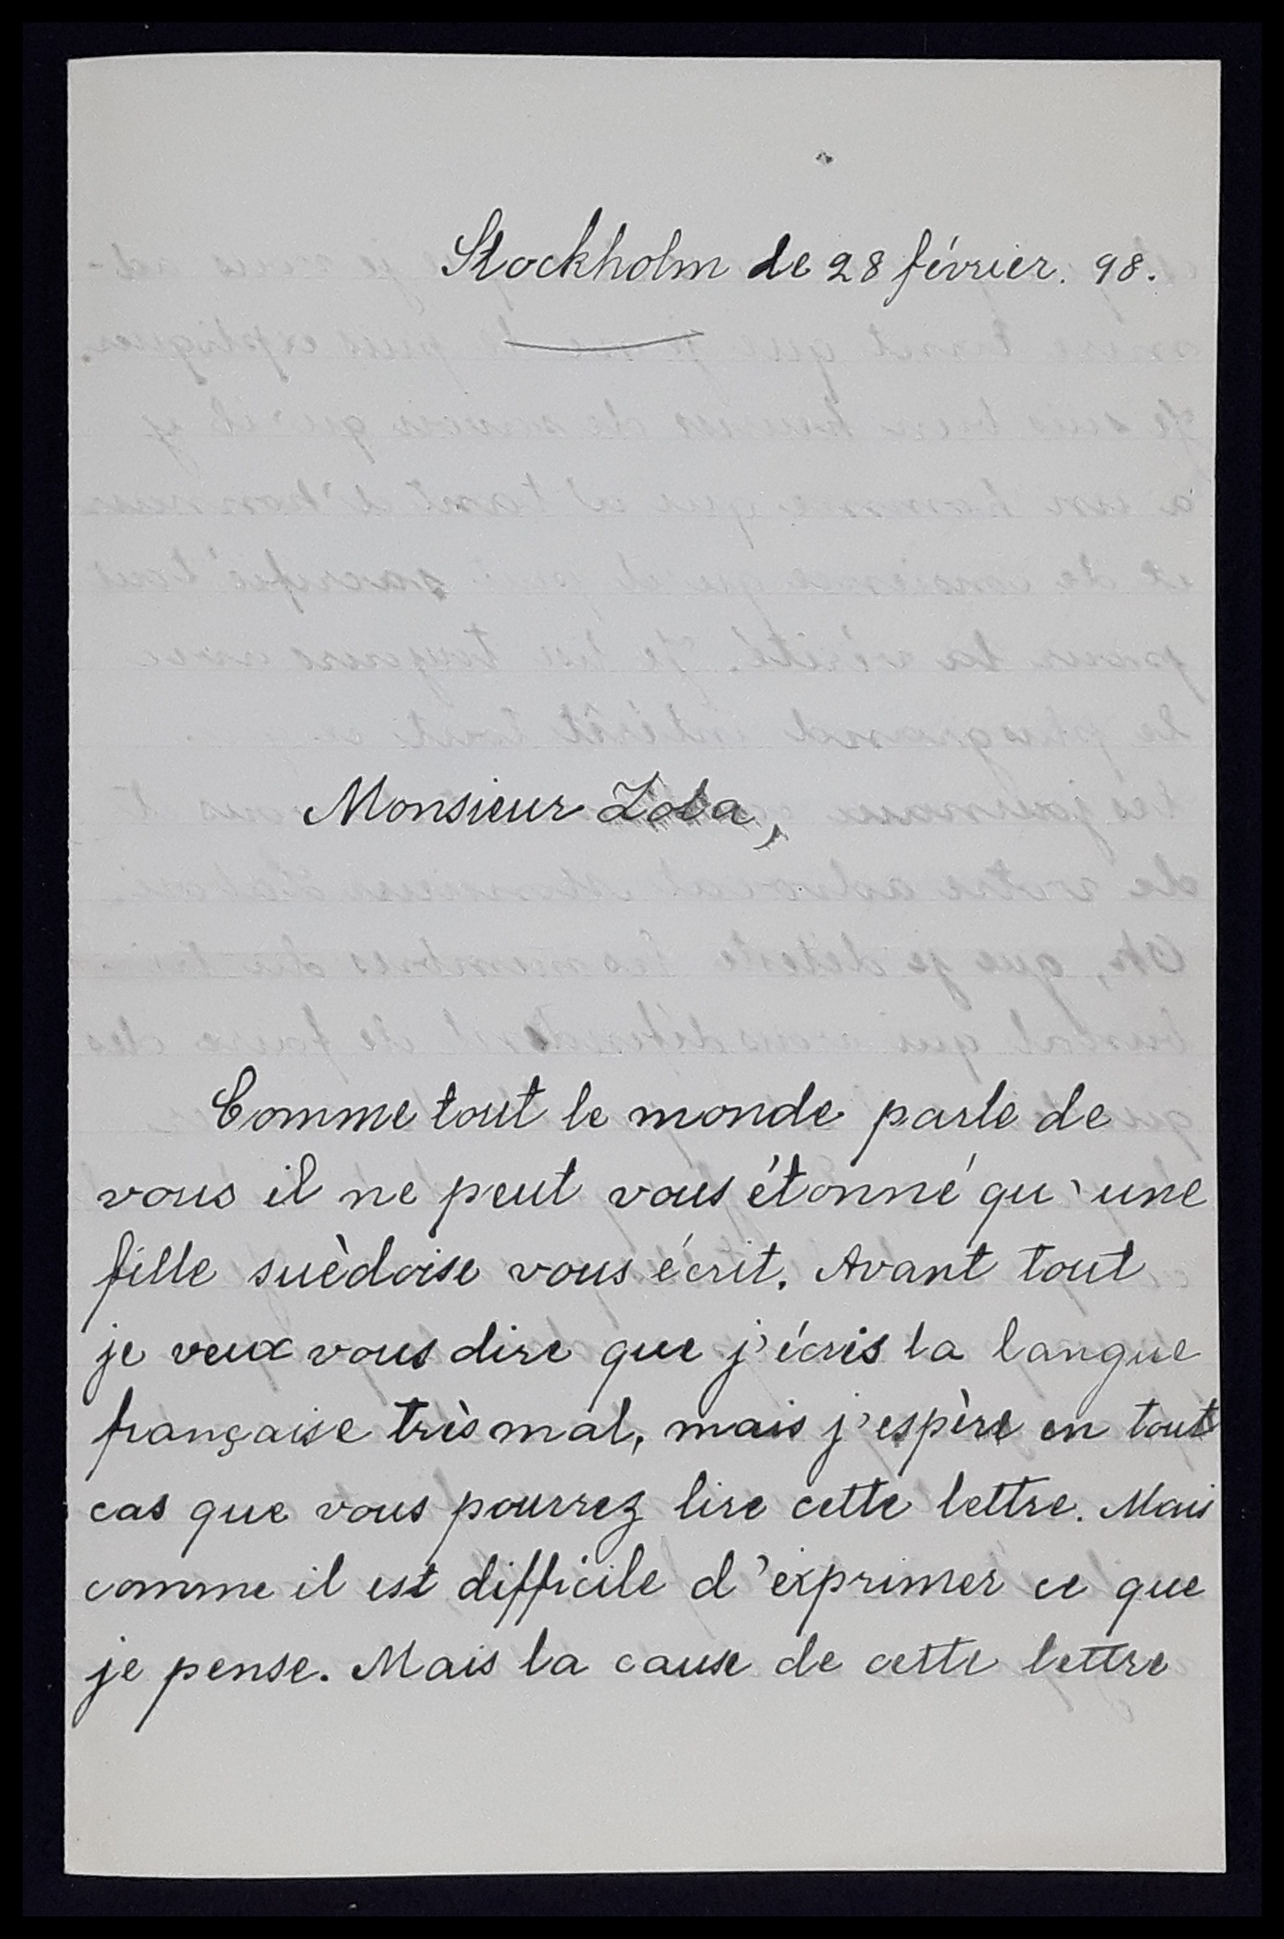 Stockholm de 28 février. 98.
Monsieur Zola,
Comme tout le monde parle de
vous il ne peut vous étonné qu'une
fille suèdoise vous écrit. Avant tout
je veux vous dire que j'écris la langue
française très mal, mais j'espère en tout
cas que vous pourrez lire cette lettre. Mais
comme il est difficile d'exprimer ce que
je pense. Mais la cause de cette lettre